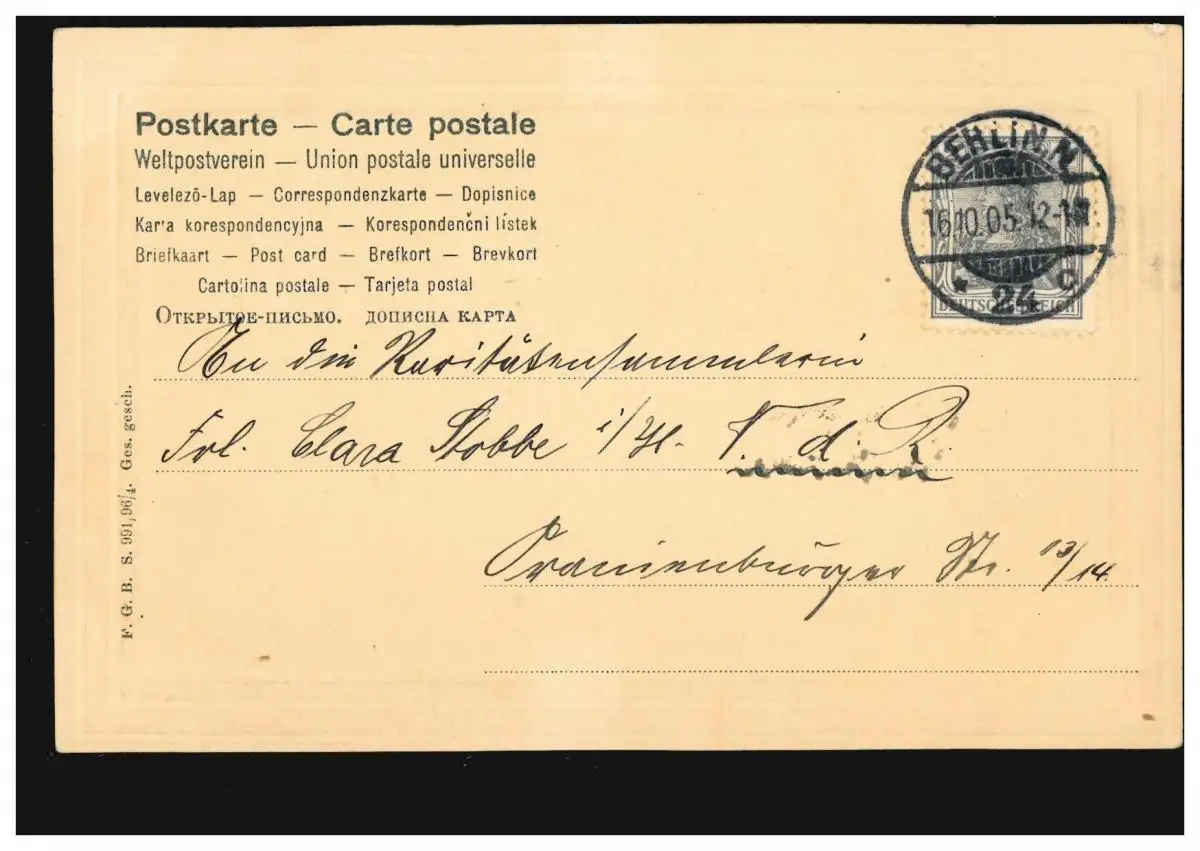 Postkarte — Carte postale
Weltpostverein — Union postale universelle
Levelezõ-Lap — Correspondenzkarte — Dopisnice
Karta korespondencyjna — Korespondenčni lístek
Briefkaart — Post card — Brefkort — Brevkort
Cartolina postale — Tarjeta postal
Открытое-письмо. дописна карта
BERLIN.N.
16.10.05.12-1N.
* 24 c
DEUTSCHES REICH
An die Raritätensammlerin
Frl. Clara Stobbe i/H. V. d. R.
Oranienburger Str. 13/14.
F. G. B. S. 991,96/4. Ges. gesch.